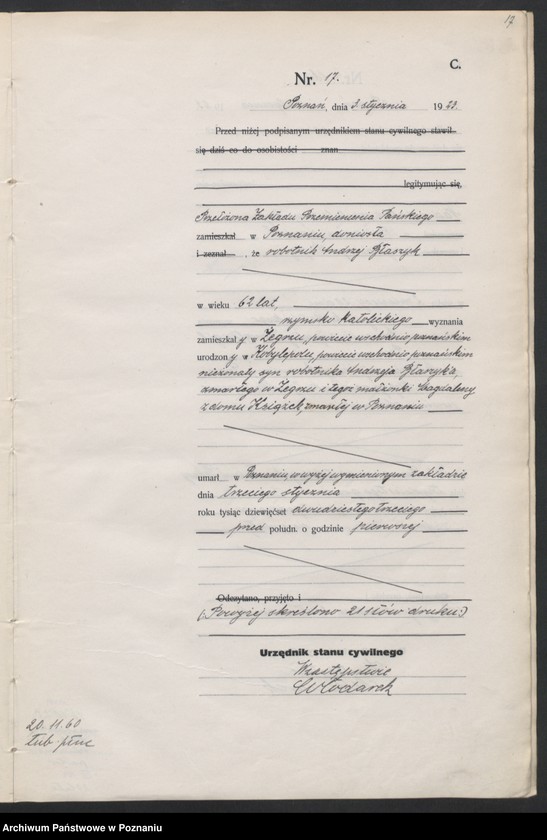 17
C.
Nr. 17.
Poznań, dnia 3 stycznia 1923.
Przed niżej podpisanym urzędnikiem stanu cywilnego stawił
się dziś co do osobistości znan
legitymując się,
Przełożona Zakładu Przemienienia Pańskiego
zamieszkał w Poznaniu, doniosła
i zeznał , że robotnik Andrzej Błaszyk
w wieku 62 lat,
rzymsko katolickiego wyznania
zamieszkały w Żegrzu, powiecie wschodnio poznańskim
urodzony w Kobylepolu, powiecie wschodnio poznańskim
nieżonaty syn robotnika Andrzeja Błaszyka,
zmarłego w Żegrzu i tegoż małżonki Magdaleny
z domu Książek, zmarłej w Poznaniu
umarł w Poznaniu, w wyżej wymienionym zakładzie
dnia trzeciego stycznia
roku tysiąc dziewięćset dwudziestego trzeciego
przed połudn. o godzinie pierwszej
Odczytano, przyjęto i
(: Powyżej skreślono 21 słów druku :)
Urzędnik stanu cywilnego
W zastępstwie
Włodarek
20. 11. 60
tub. płuc
Archiwum Państwowe w Poznaniu